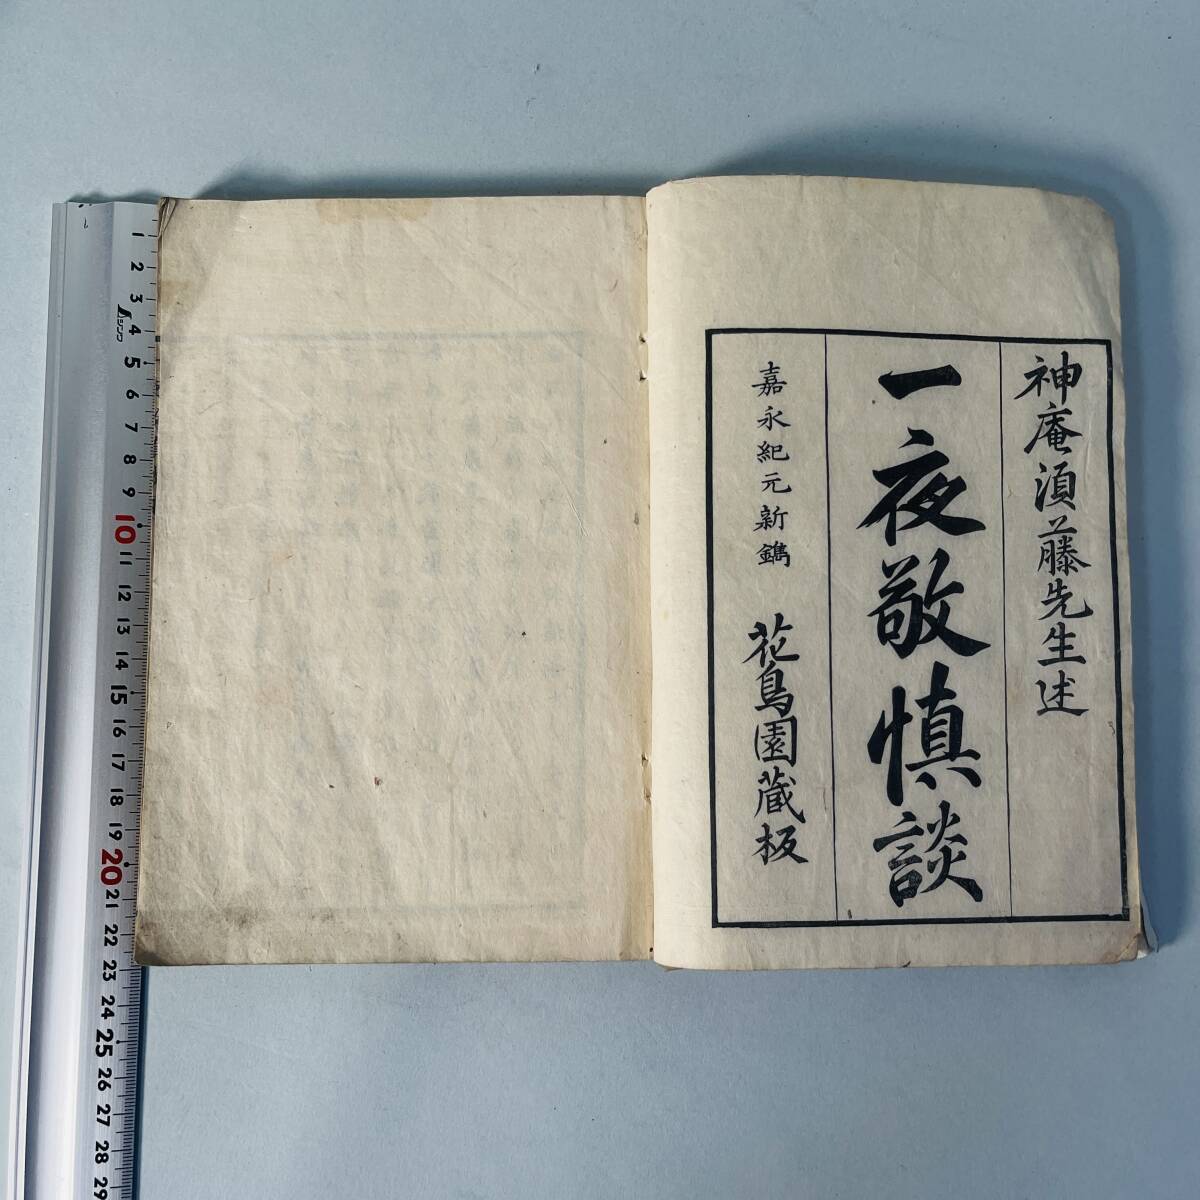 神庵須藤先生述
一夜敬慎談
嘉永紀元新鐫
花鳥園蔵板
1
2
3
4
シンワ
5
6
7
8
9
10
11
12
13
14
15
16
17
18
19
20
21
22
23
24
25
26
27
28
29